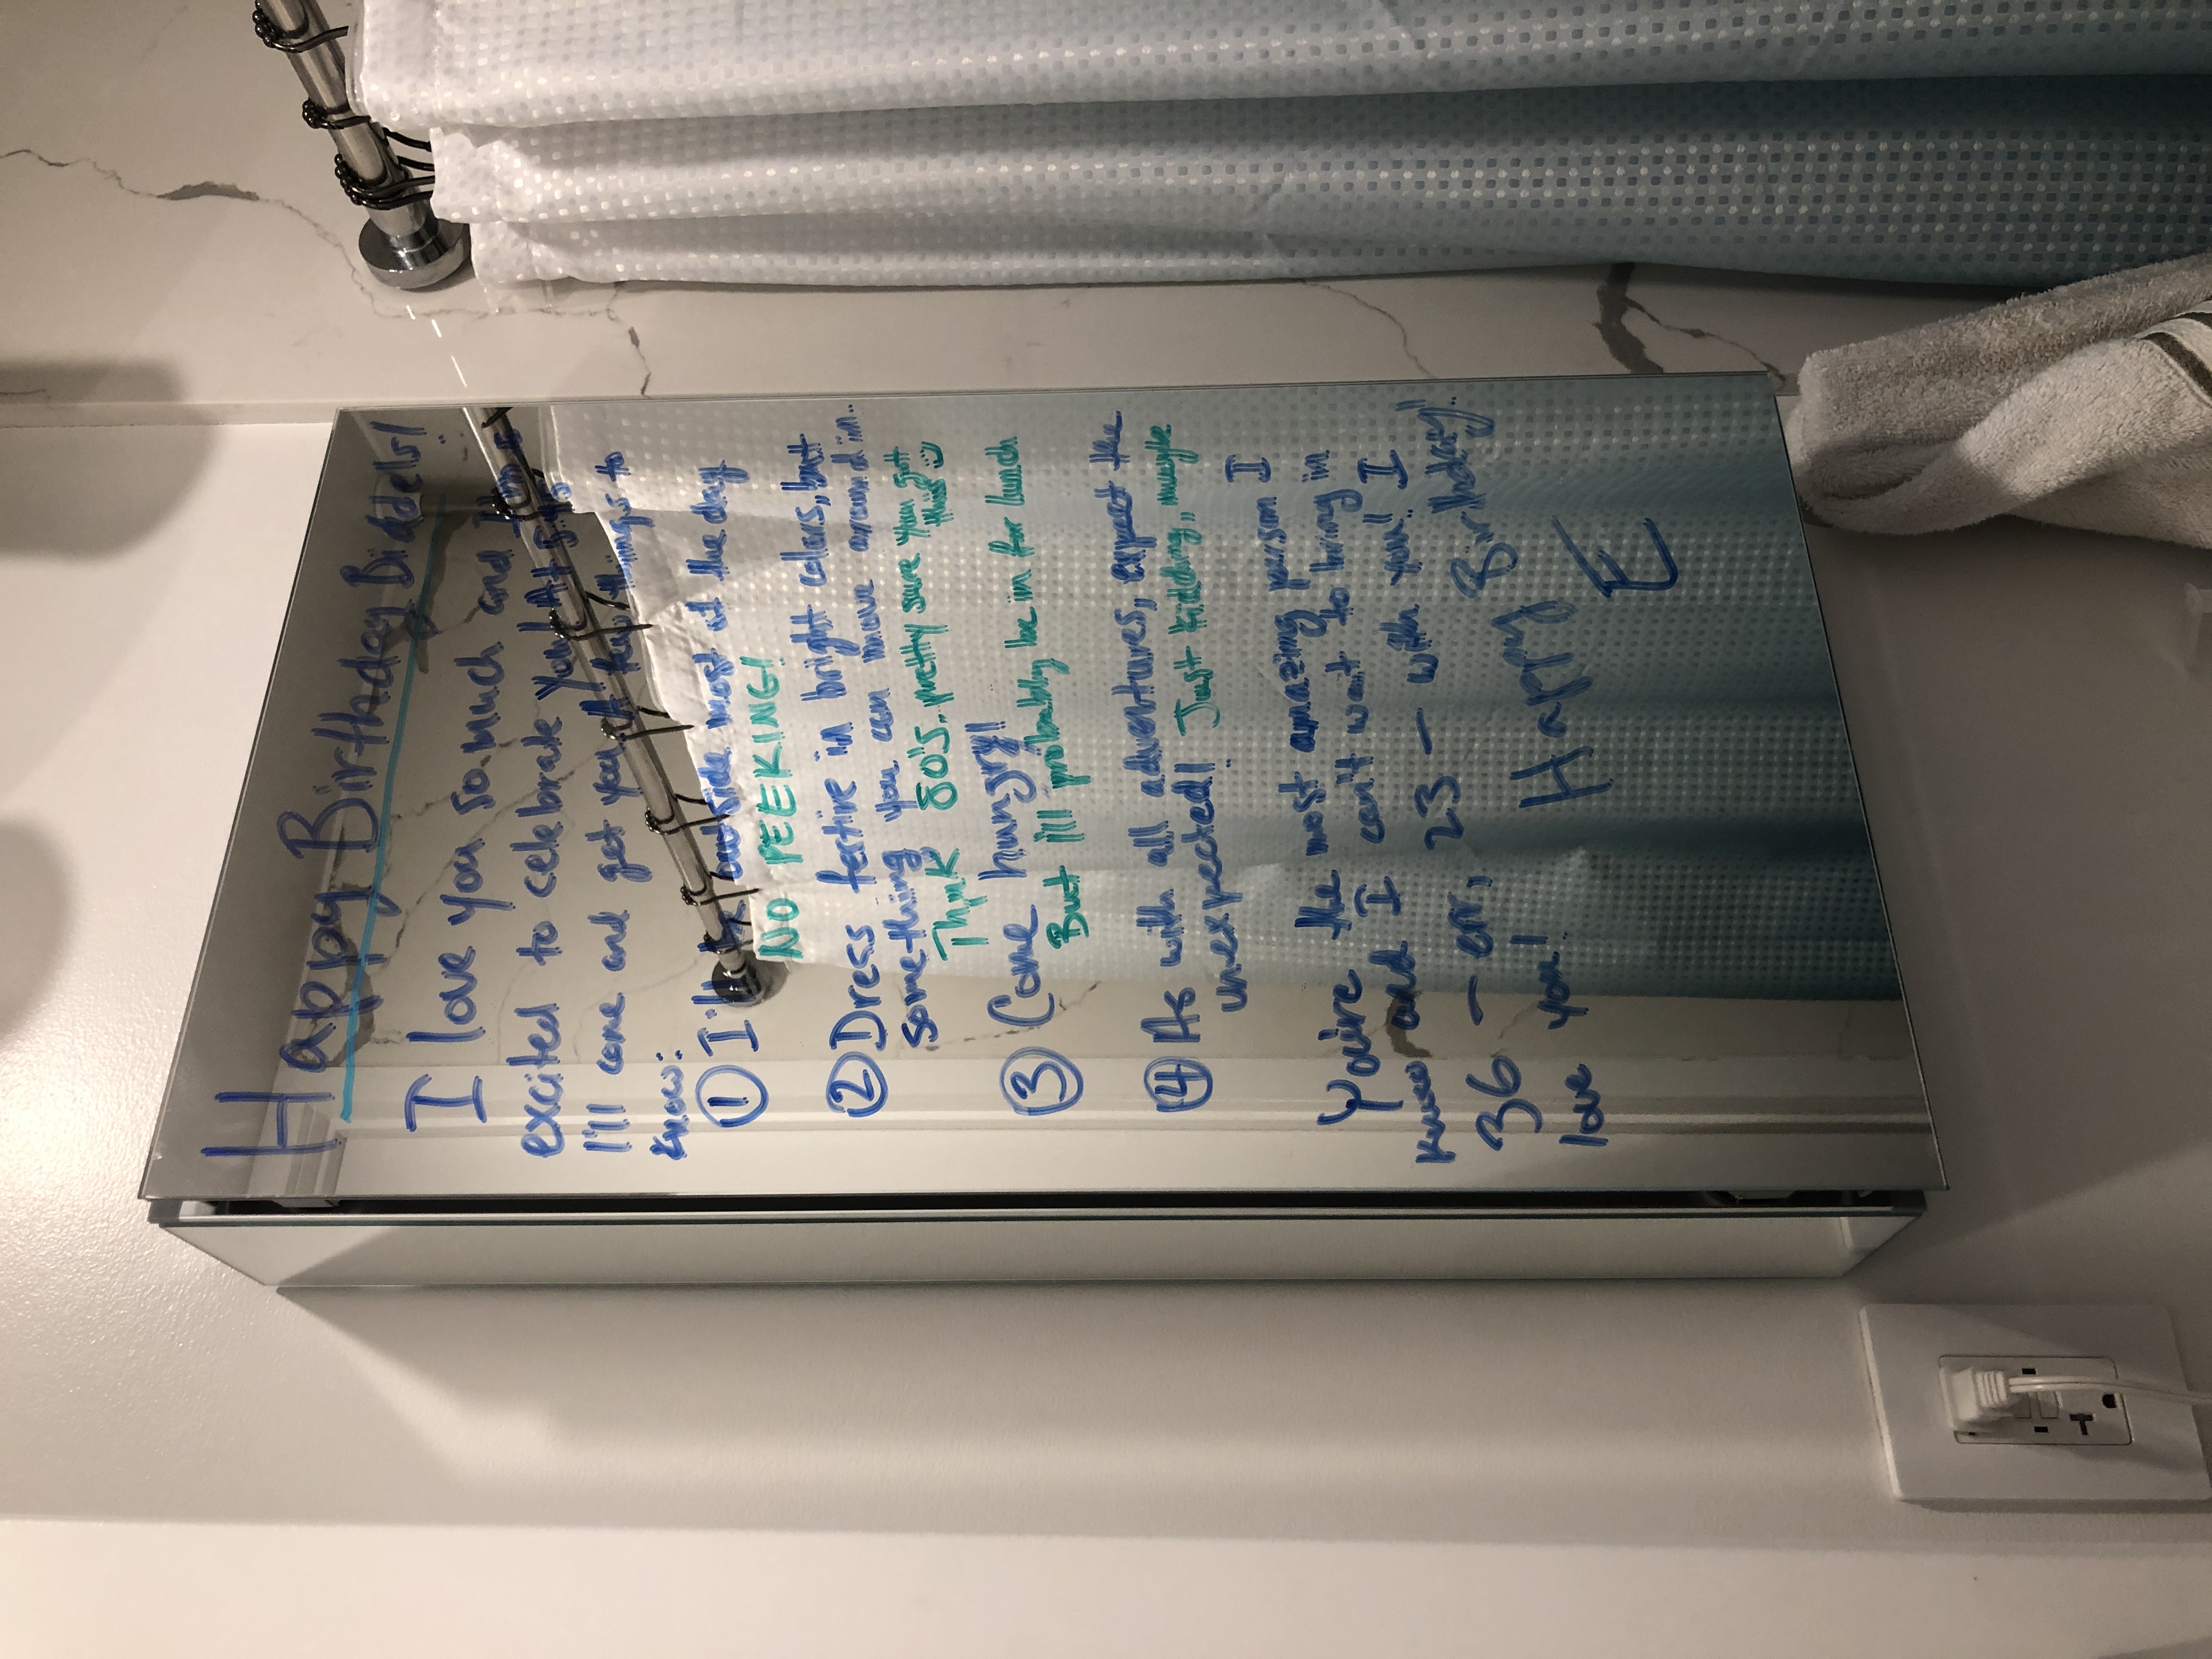 Happy Birthday Biddels!
I love you so much and I'm so
excited to celebrate you! At 5:45
I'll come and get you. A few things to
know:
① I'll be outside most of the day
NO PEEKING!
② Dress festive in bright colors, but
something you can move around in.
Think 80's. pretty sure you got
this :)
③ Come hungry!
But I'll probably be in for lunch
④ As with all adventures, expect the
unexpected! Just kidding, maybe
You're the most amazing person I
know and I can't wait to bring in
36 - err, 23 - with you! I
love you! Happy Birthday!
E